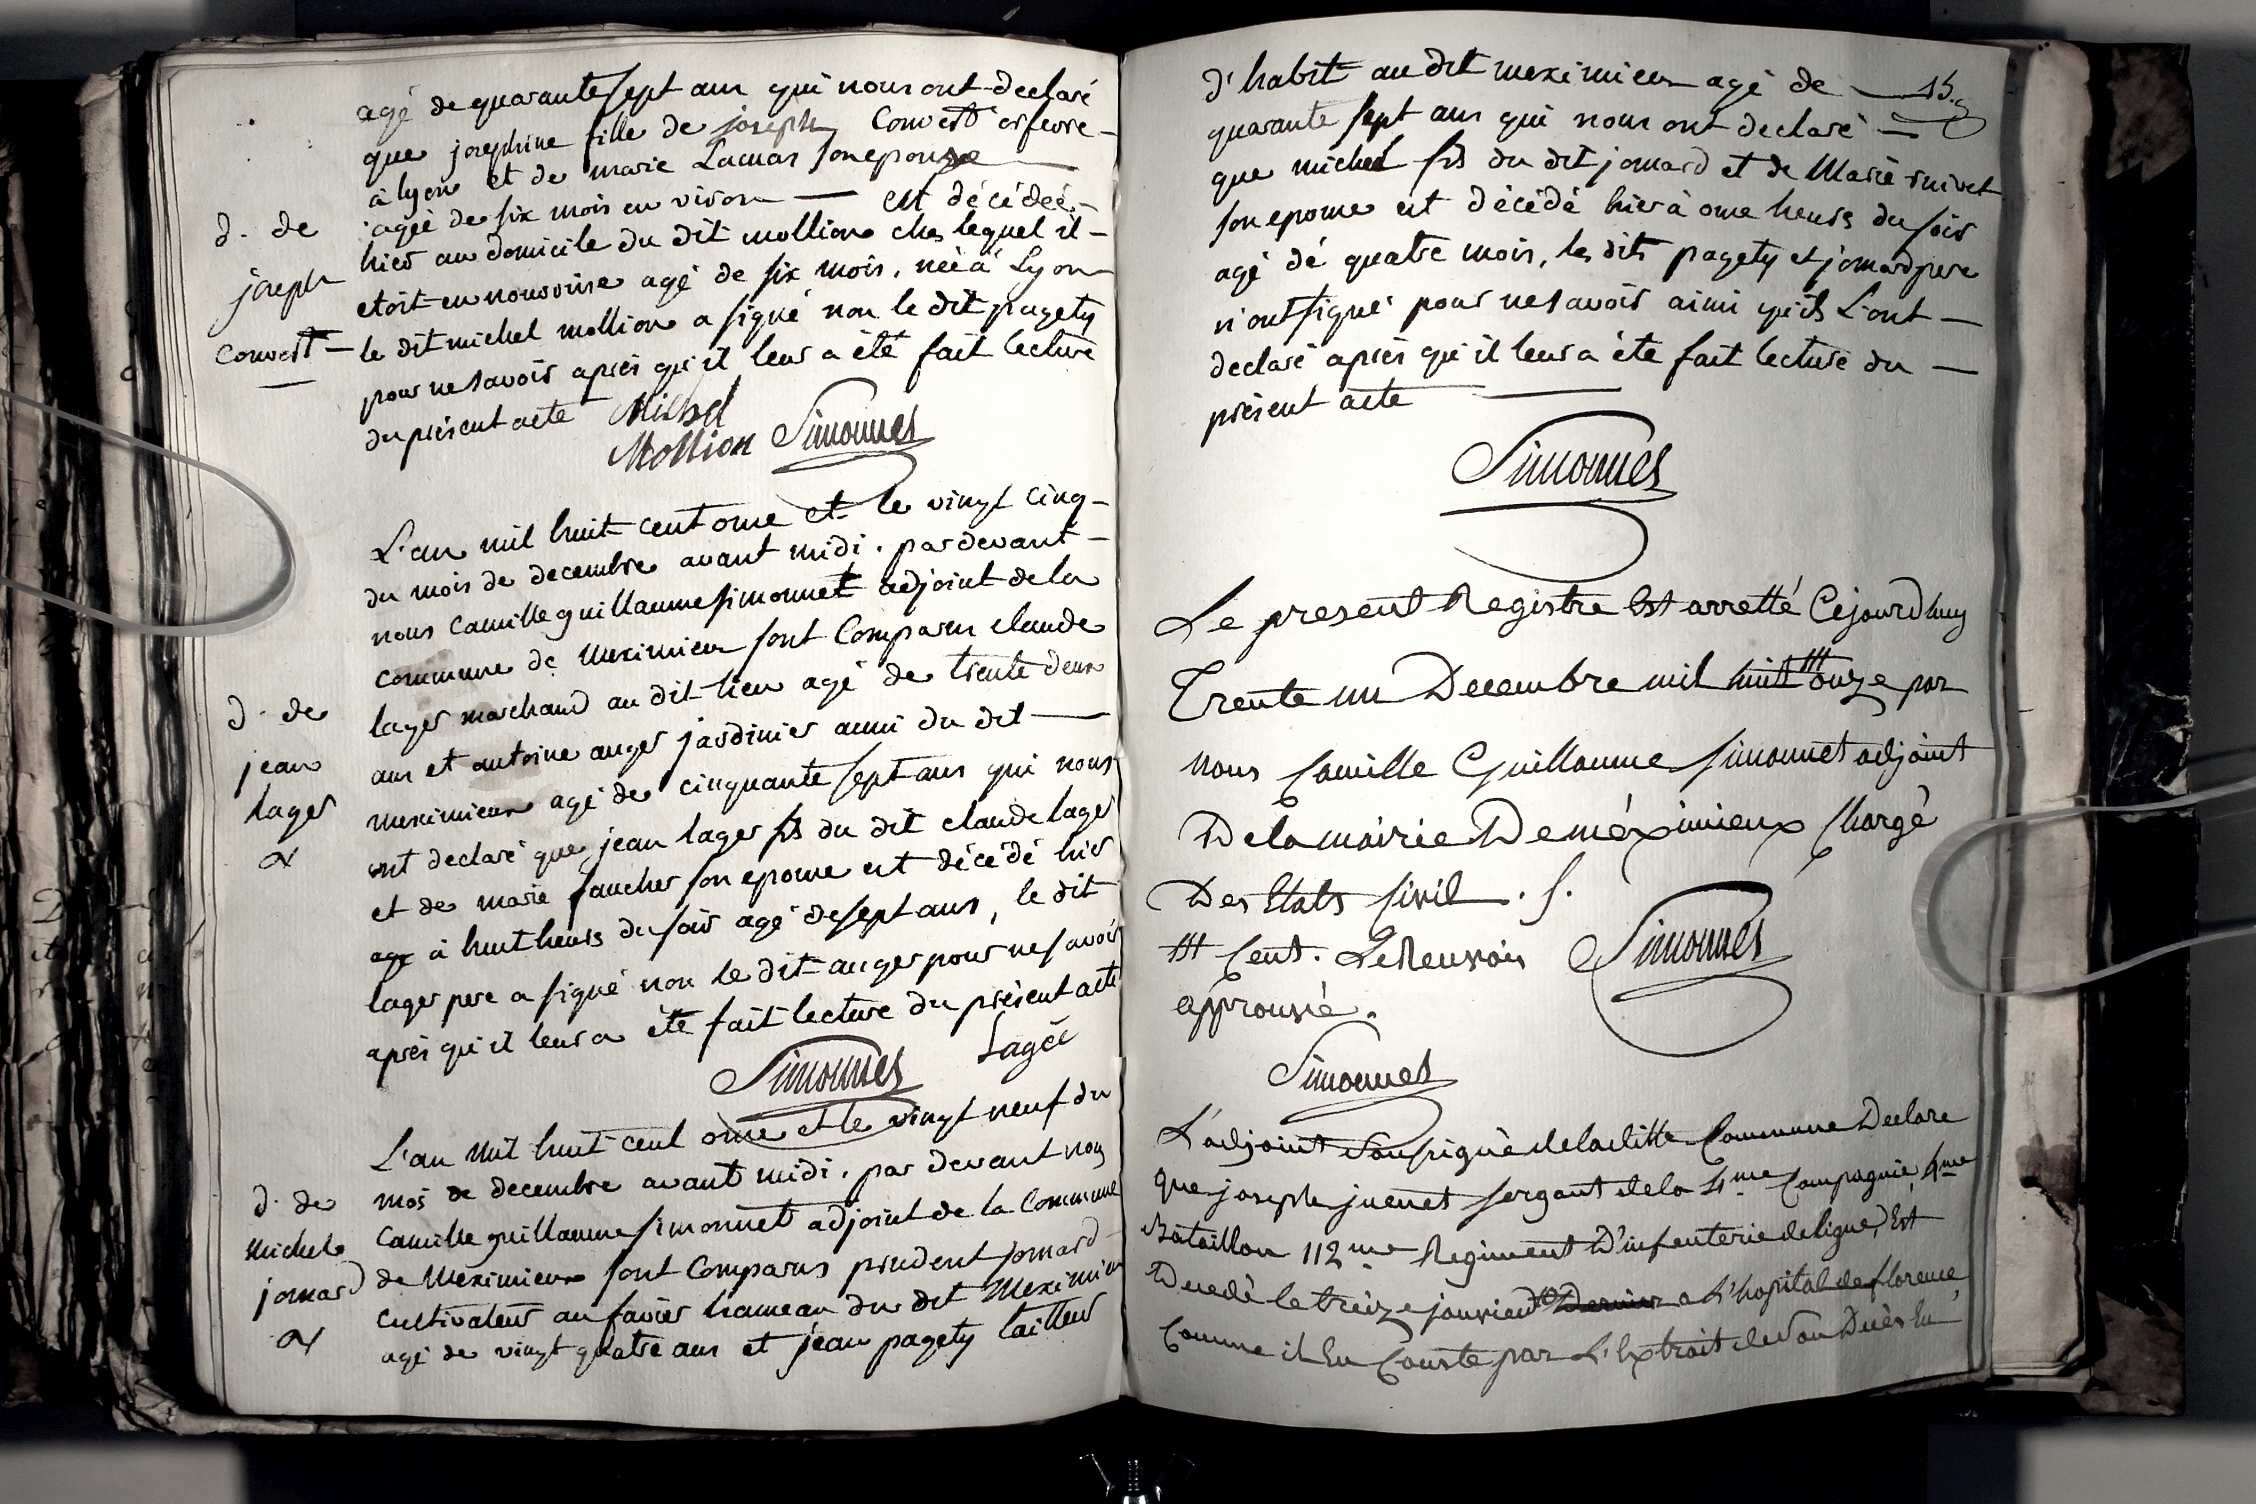 agé de quarante sept ans qui nous ont declaré
que josephine fille de joseph Convert orfevre
à lyon et de marie Lacuas son epouse
agée de six mois en viron — est décédée
d. de
joseph
Convert
hier au domicile du dit mollion ches lequel il
etoit en nourrise agé de six mois, née à Lyon
le dit michel mollion a signé non le dit pagety
pour ne savoir après qu'il leur a été fait lecture
du présent acte Michel
Mollion Simonnet
L'an mil huit cent onse et le vingt cinq
du mois de decembre avant midi. par devant
nous Camille guillaume simonnet adjoint de la
commune de Meximieux sont Comparus claude
d. de
jean
lager
lager marchand au dit lieu agé de trente deux
ans et antoine auger jardinier aussi du dit
meximieux agé de cinquante sept ans qui nous
ont declaré que jean lager fils du dit claude lager
et de marie faucher son epouse est décédé hier
age à huit heurs du soir agé de sept ans, le dit
lager pere a signé non le dit auger pour ne savoir
après qu'il leur a été fait lecture du présent acte
Simonnet Lagée
L'an mil huit cent onse et le vingt neuf du
d. de
michel
jomard
mois de decembre avant midi. par devant nous
Camille guillaume simonnet adjoint de la Commune
de Meximieux sont Comparus prudent jomard
cultivateur au favier hameau du dit Meximieux
agé de vingt quatre ans et jean pagety tailleur
d'habit au dit meximieux agé de — 15.
quarante sept ans qui nous ont declaré —
que michel fils du dit jomard et de Marie rnivet
son epouse est décédé hier à onse heurs du soir
agé dé quatre mois, les dits pagety et jomard pere
n'ont signé pour ne savoir ainsi qu'ils L'ont —
declaré après qu'il leur a été fait lecture du —
présent acte
Simonnet
Le present Registre Est arretté Cejourdhuy
Trente un Decembre mil huit ⧻ onze par
nous Camille Guillaume Simonnet adjoint
De la mairie De méximieux Chargé
Des Etats Civil . S.
⧻ Cent. Le Renvois Simonnet
approuvé.
Simonnet
L'adjoint Soussigné de la ditte Commune Declare
que joseph juenet sergant de la 4me Compagnie 4me
Bataillon 112me Regiment D'infenterie de ligne, Est
Decedé le treize janvier Dernier a L'hopital de florence
Comme il En Conste par L'Extrait de Son Decès En